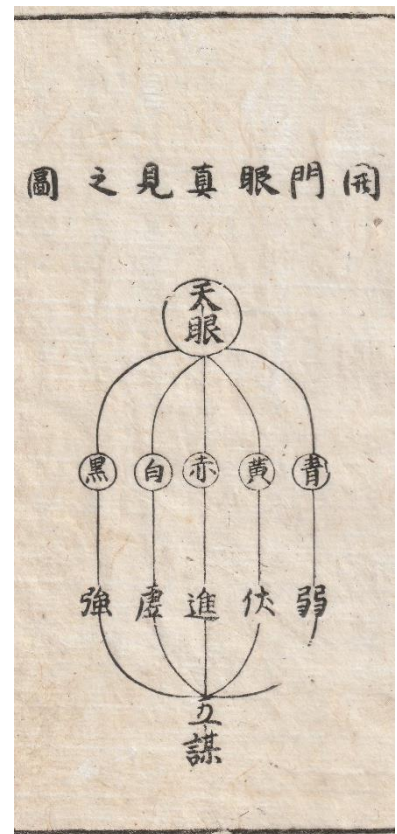 開門眼真見之圖
天眼
青黃赤白黑
弱伏進虛強
五謀